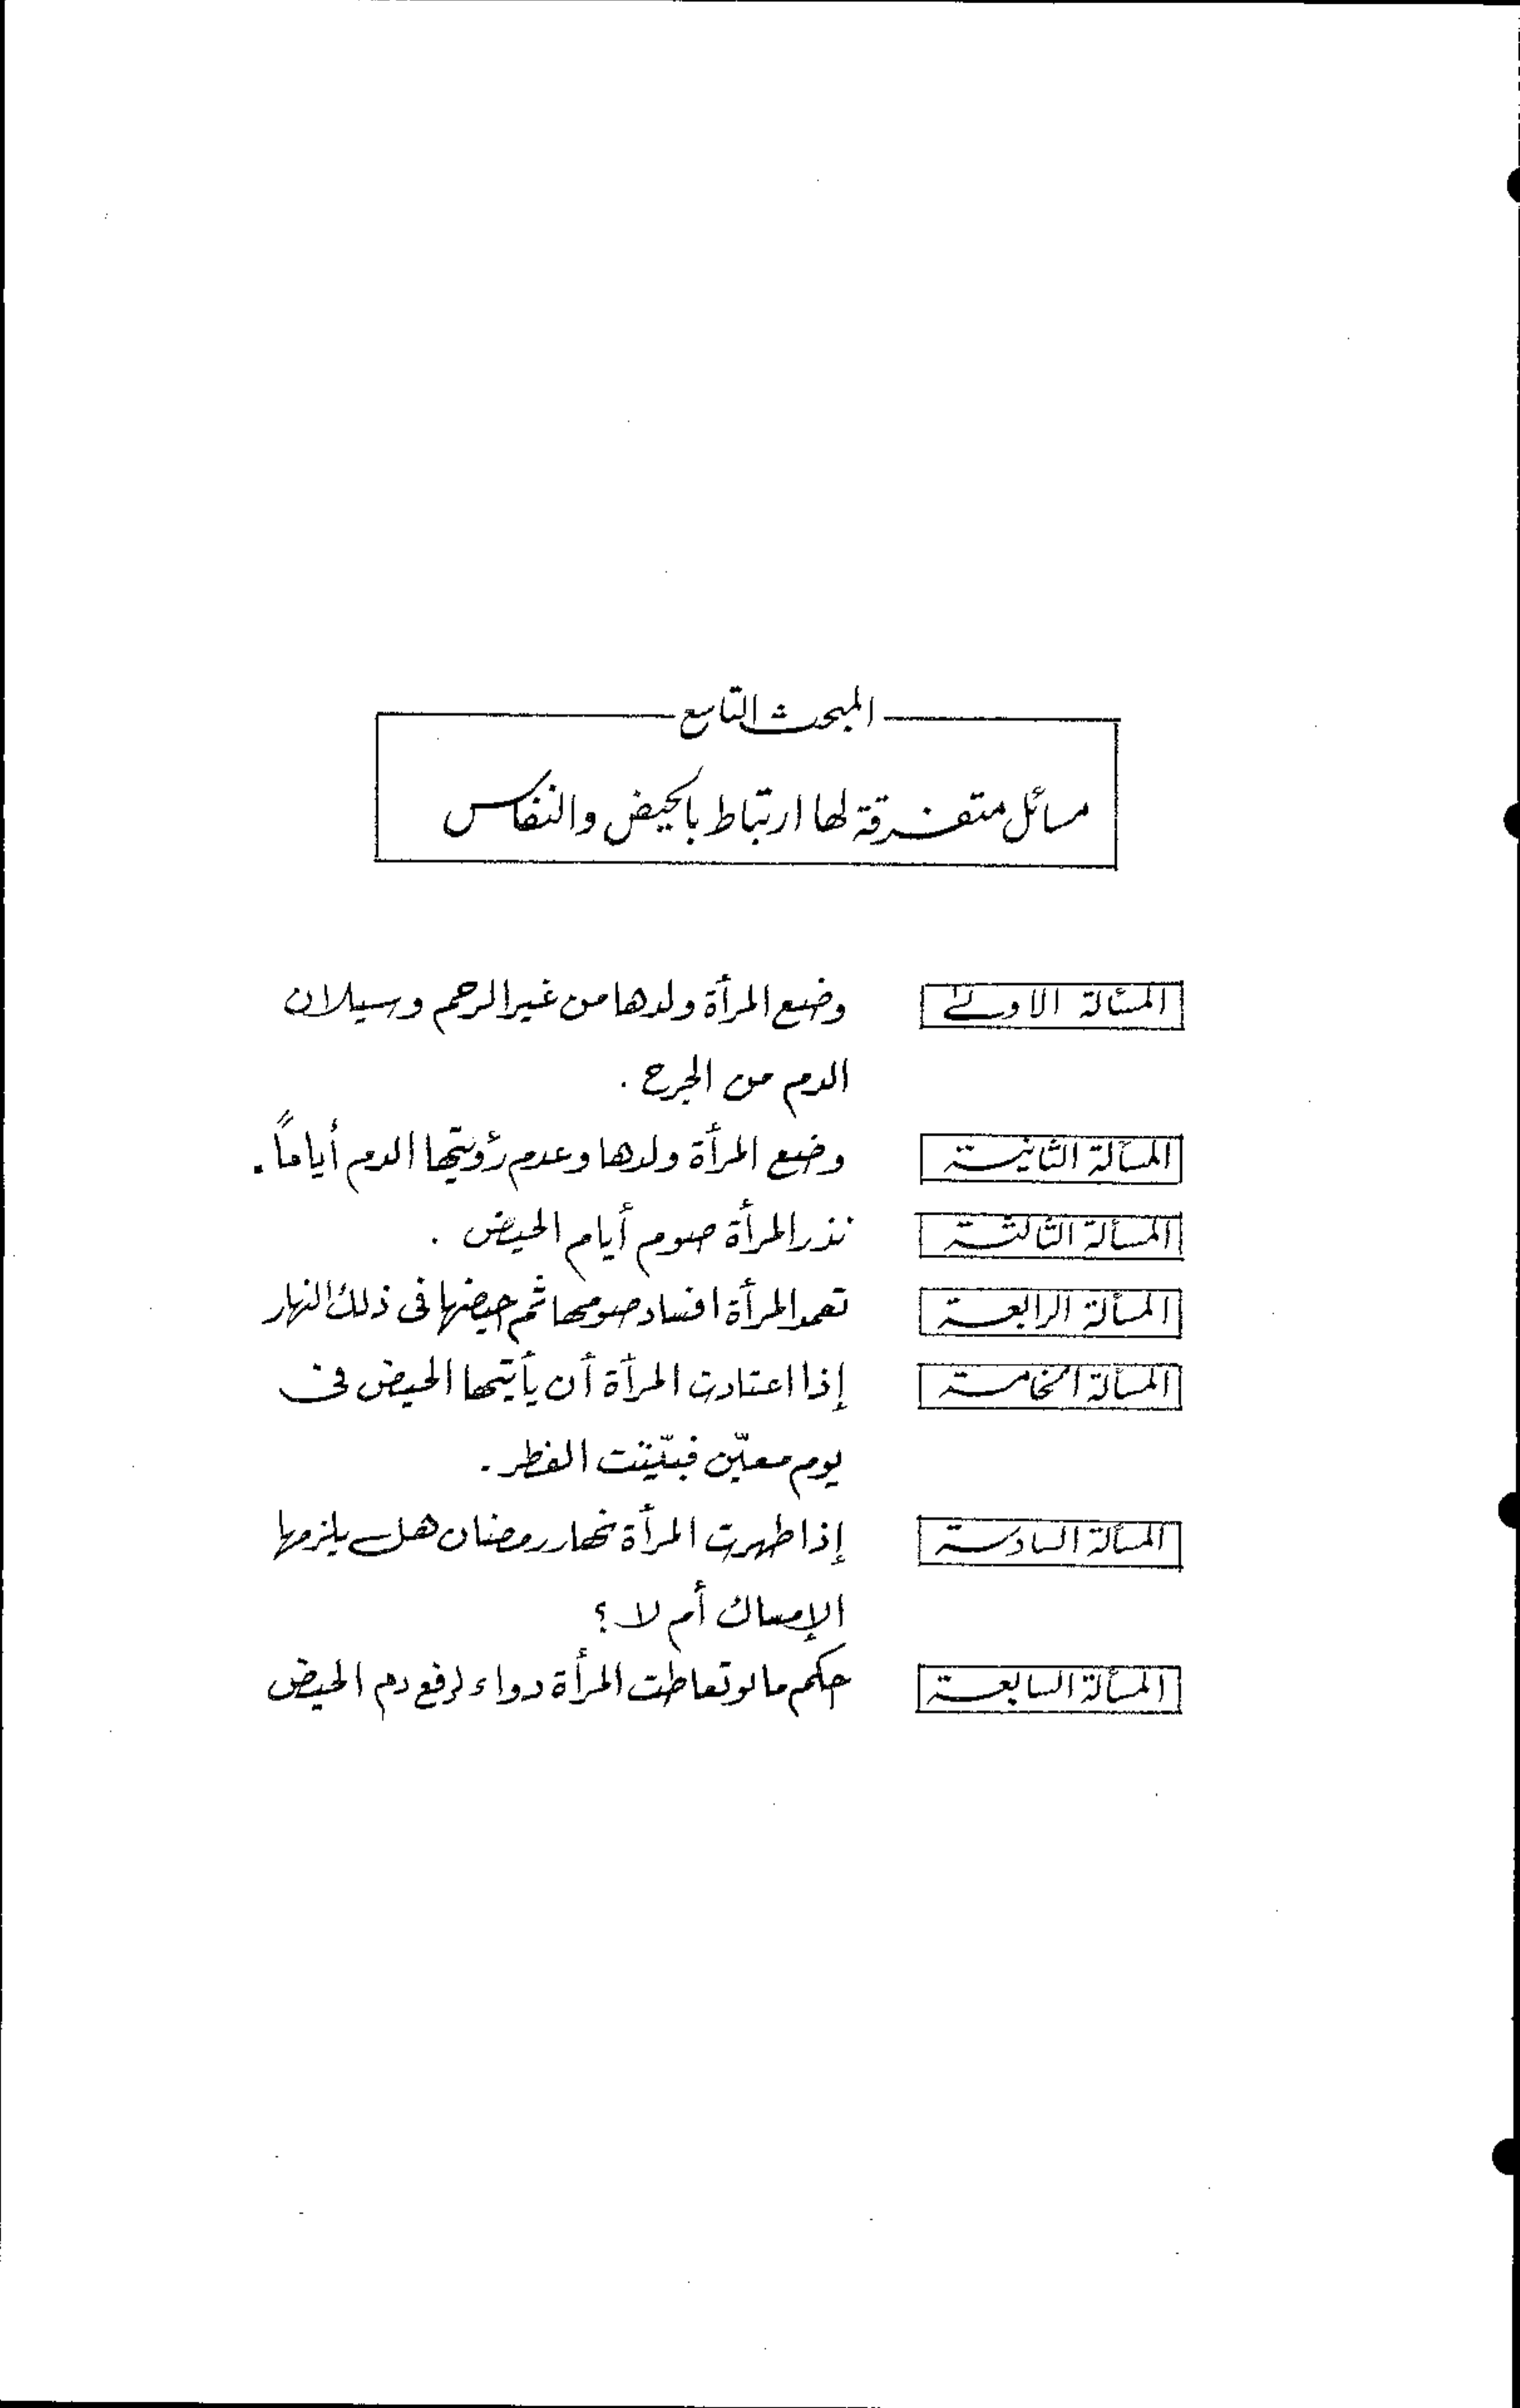 المبحث التاسع
مسائل متفرقة لها ارتباط بالحيض والنفاس
المسألة الاولى وضع المرأة ولدها من غير الرحم وسيلان
الدم من الجرح .
المسألة الثانية وضع المرأة ولدها وعدم رؤيتها الدم أياماً .
المسألة الثالثة نذر المرأة صوم أيام الحيض .
المسألة الرابعة تعمد المرأة افساد صومها ثم حيضها فى ذلك النهار
المسألة الخامسة إذا اعتادت المرأة أن يأتيها الحيض في
يوم معيّن فبيّتت الفطر .
المسألة السادسة إذا طهرت المرأة نهار رمضان هل يلزمها
الإمساك أم لا ؟
المسألة السابعة حكم ما لو تعاطت المرأة دواء لرفع دم الحيض